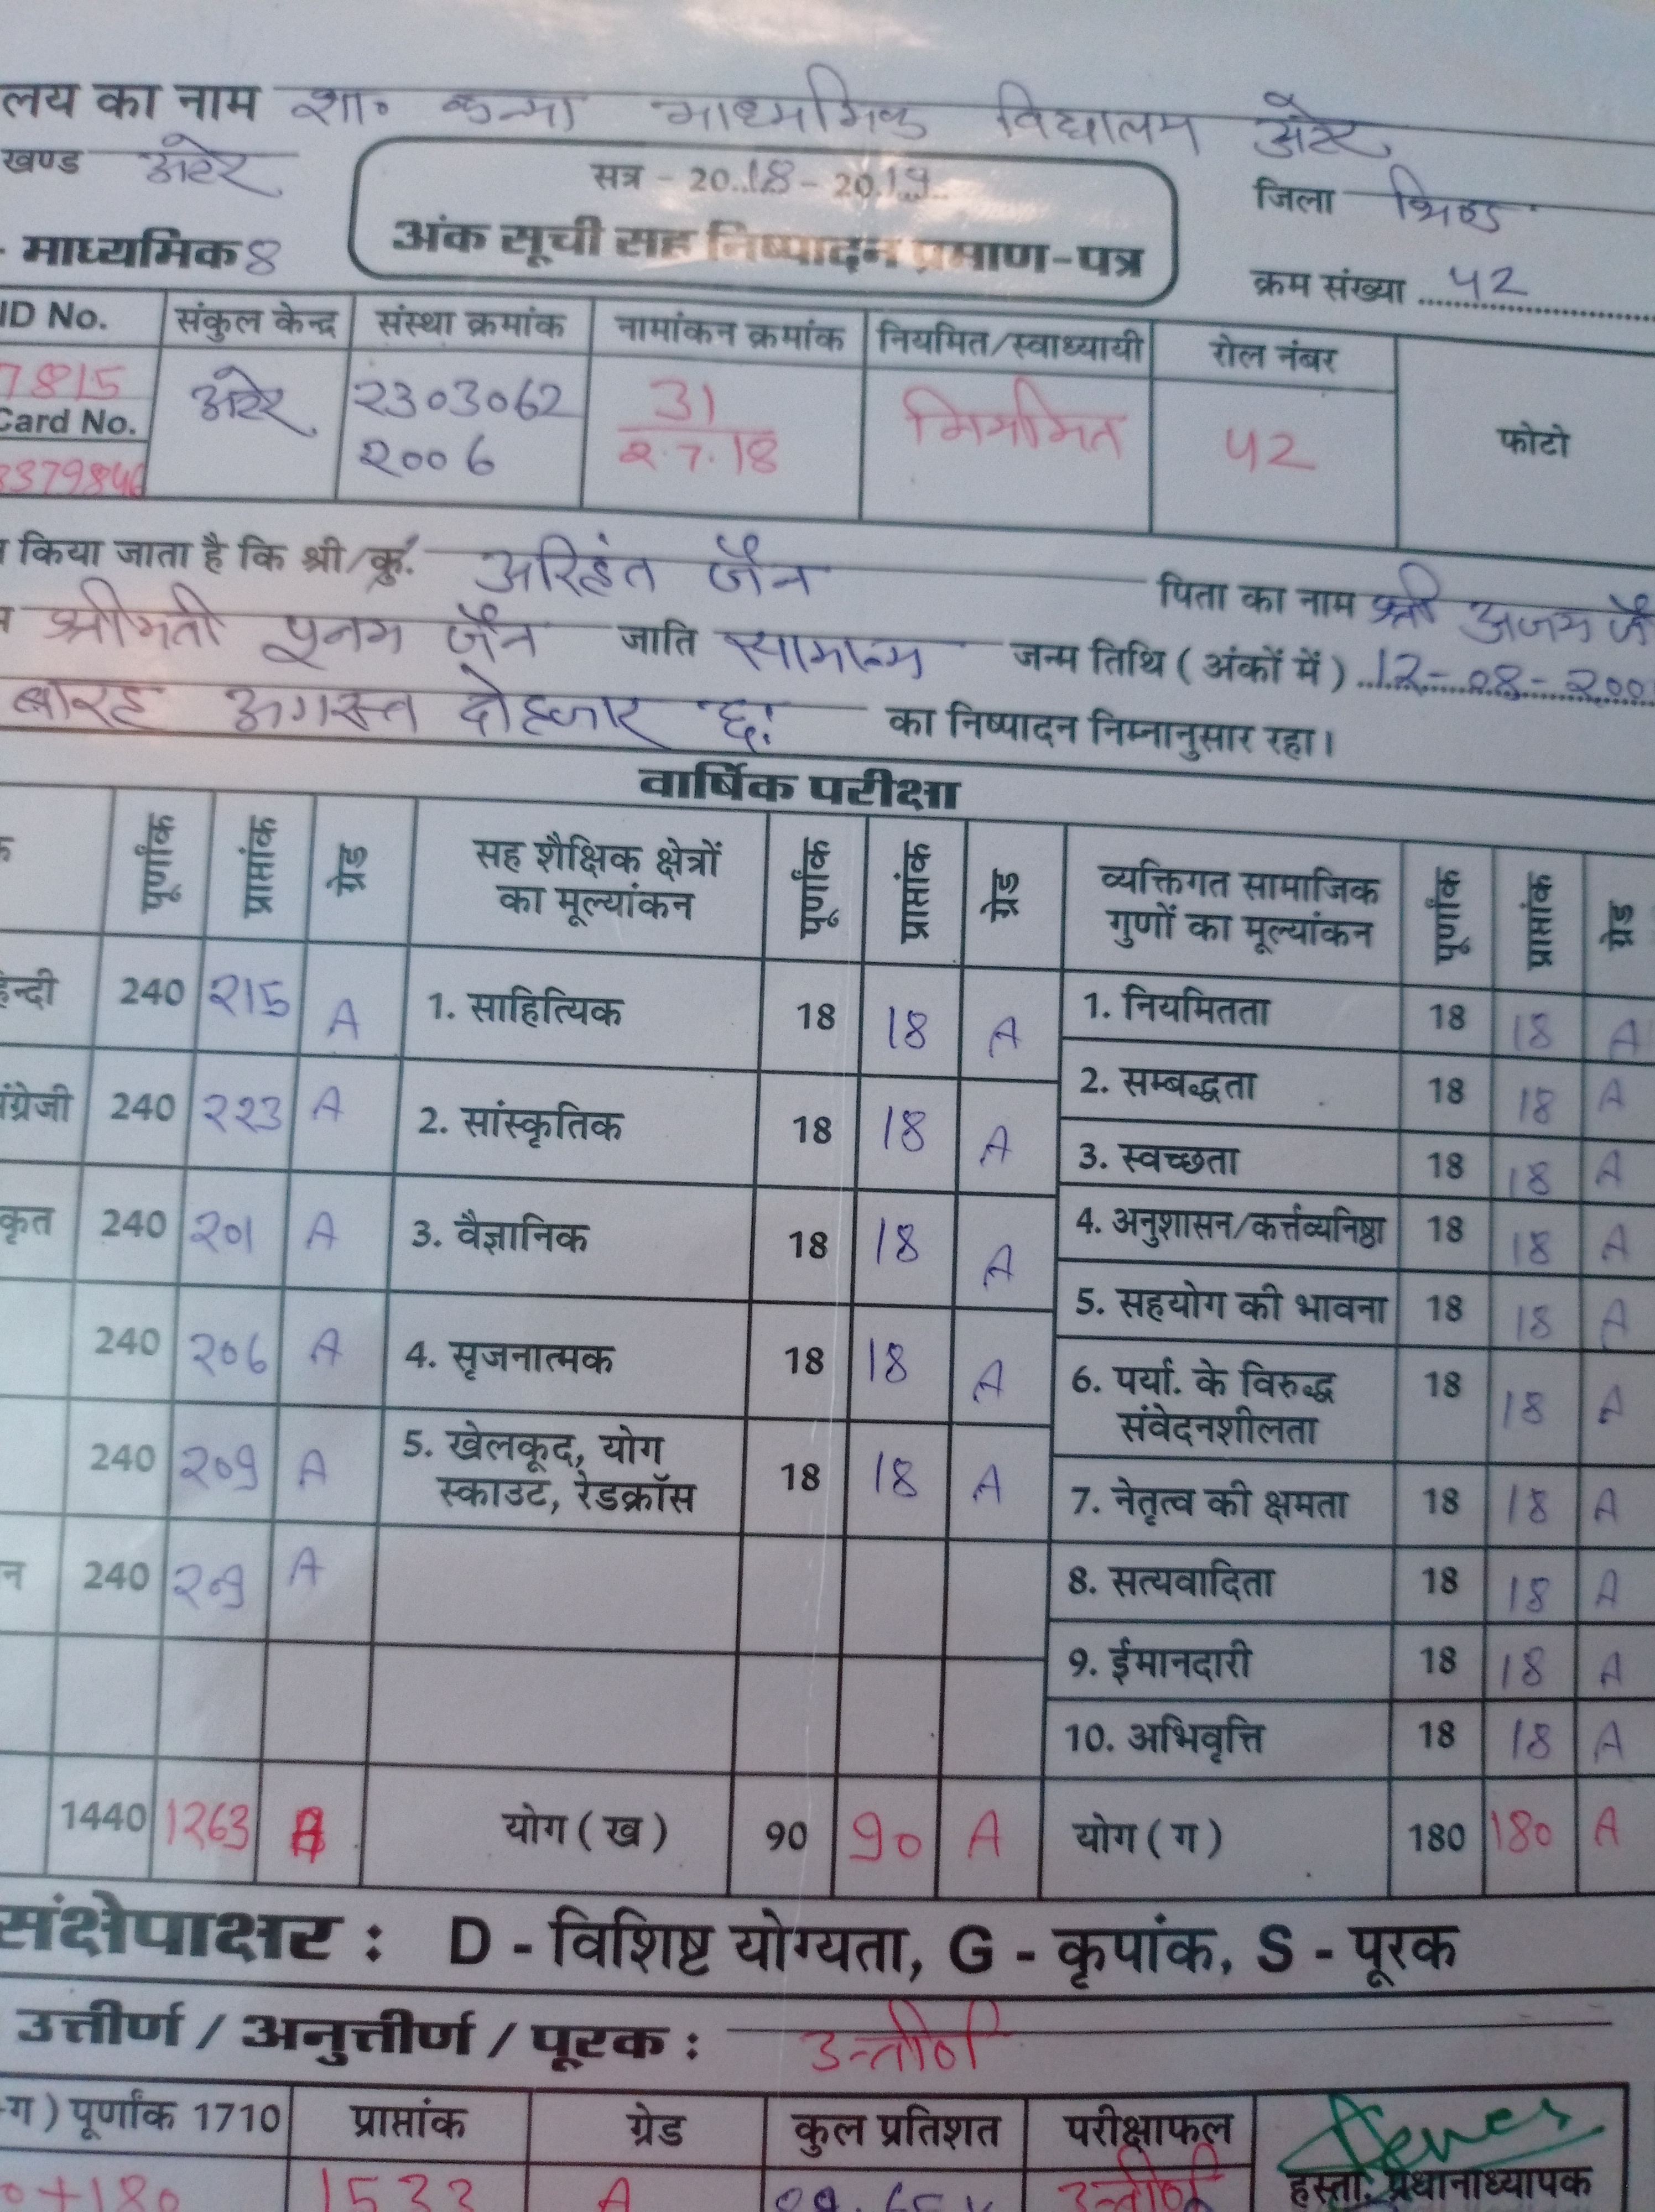 लय का नाम शा० कन्या माध्यमिक विद्यालय अटेर
खण्ड अटेर सत्र - 2018 - 2019 जिला भिण्ड
- माध्यमिक 8 अंक सूची सह निष्पादन प्रमाण-पत्र क्रम संख्या 42
ID No. संकुल केन्द्र संस्था क्रमांक नामांकन क्रमांक नियमित/स्वाध्यायी रोल नंबर
7815 अटेर 2303062 31 नियमित 42 फोटो
Card No. 2006 2.7.18
किया जाता है कि श्री/कु. अरिहंत जैन पिता का नाम श्री अजय जै
श्रीमती पूनम जैन जाति सामान्य जन्म तिथि ( अंकों में ) 12-08-200
बारह अगस्त दो हजार छः का निष्पादन निम्नानुसार रहा।
वार्षिक परीक्षा
पूर्णांक प्राप्तांक ग्रेड सह शैक्षिक क्षेत्रों का मूल्यांकन पूर्णांक प्राप्तांक ग्रेड व्यक्तिगत सामाजिक गुणों का मूल्यांकन पूर्णांक प्राप्तांक ग्रेड
हिन्दी 240 215 A 1. साहित्यिक 18 18 A 1. नियमितता 18 18 A
2. सम्बद्धता 18 18 A
अंग्रेजी 240 223 A 2. सांस्कृतिक 18 18 A 3. स्वच्छता 18 18 A
कृत 240 201 A 3. वैज्ञानिक 18 18 A 4. अनुशासन/कर्त्तव्यनिष्ठा 18 18 A
5. सहयोग की भावना 18 18 A
240 206 A 4. सृजनात्मक 18 18 A 6. पर्या. के विरुद्ध 18 18 A
संवेदनशीलता
240 209 A 5. खेलकूद, योग 18 18 A 7. नेतृत्व की क्षमता 18 18 A
स्काउट, रेडक्रॉस
न 240 209 A 8. सत्यवादिता 18 18 A
9. ईमानदारी 18 18 A
10. अभिवृत्ति 18 18 A
1440 1263 A योग ( ख ) 90 90 A योग ( ग ) 180 180 A
संक्षेपाक्षर : D - विशिष्ट योग्यता, G - कृपांक, S - पूरक
उत्तीर्ण / अनुत्तीर्ण / पूरक : उत्तीर्ण
ग ) पूर्णांक 1710 प्राप्तांक ग्रेड कुल प्रतिशत परीक्षाफल
+180 1533 A उत्तीर्ण हस्ता. प्रधानाध्यापक